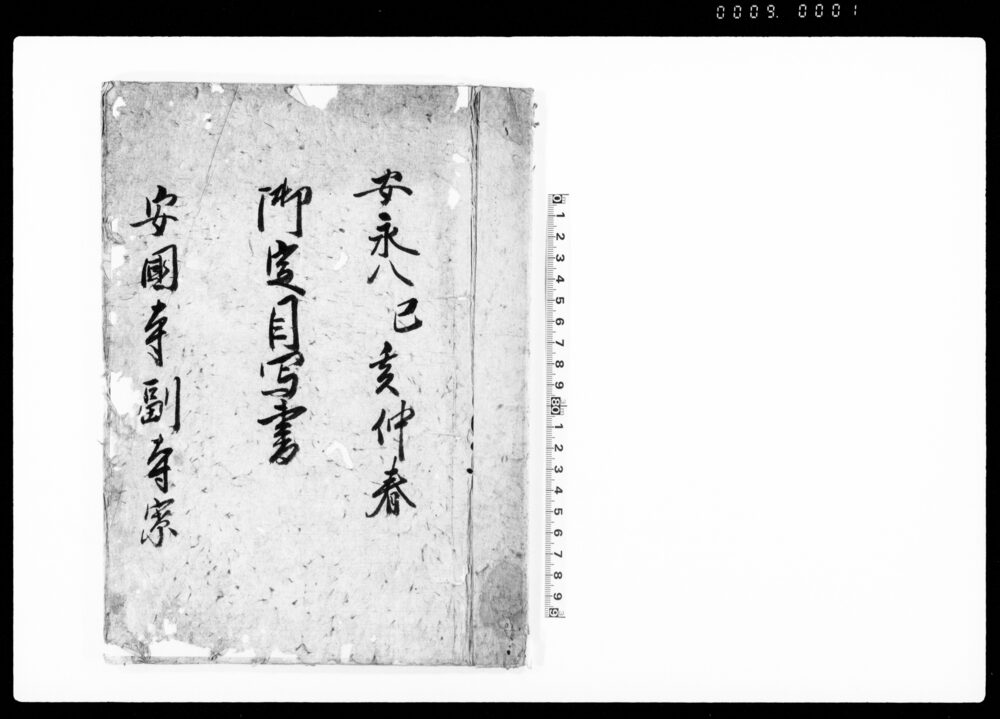 0009. 0001
安永八己亥仲春
御定目写書
安國寺副寺寮
0 1 2 3 4 5 6 7 8 9 10 1 2 3 4 5 6 7 8 9